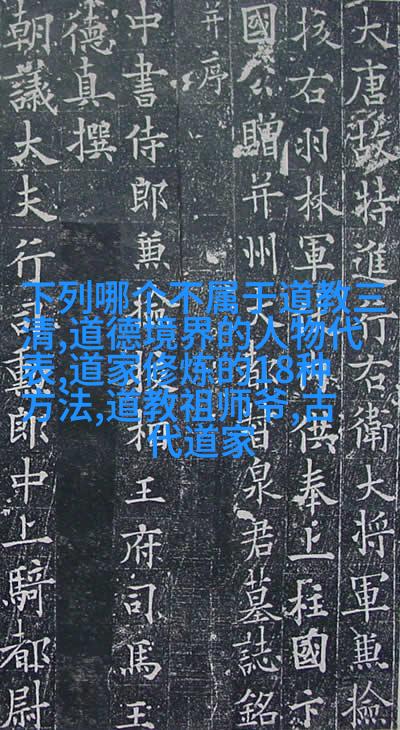 大唐故特進行右衛大將軍兼撿
挍右羽林軍仗內供奉上柱國卞
國公贈并州大都督泉君墓誌銘
并序
中書侍郎兼撿挍相王府司馬王
德真撰
朝議大夫行司勳郎中上騎都尉
下列哪个不属于道教三
清,道德境界的人物代
表,道家修炼的18种
方法,道教祖师爷,古
代道家